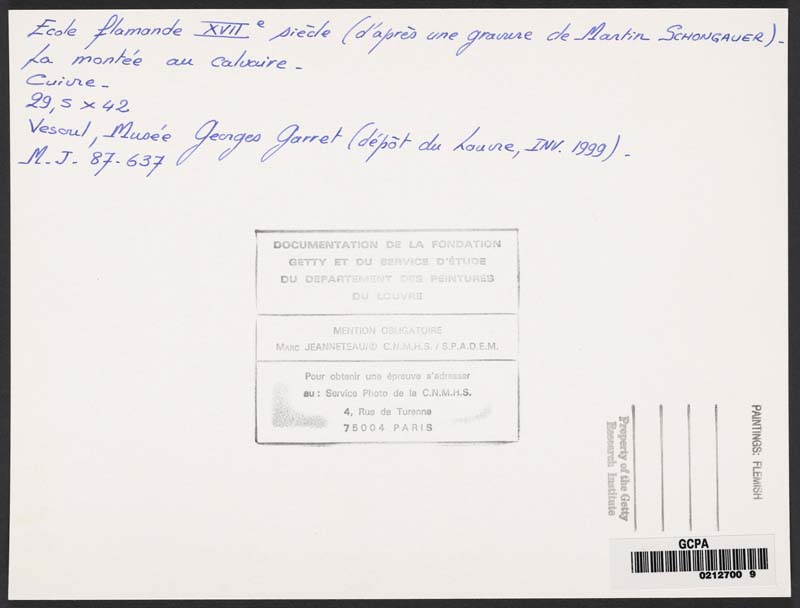 Ecole flamande XVII e siècle (d'après une gravure de Martin SCHONGAUER).
La montée au calvaire.
Cuivre.
29,5 x 42
Vesoul, Musée Georges Garret (dépôt du Louvre, INV. 1999).
M.J. 87.637
DOCUMENTATION DE LA FONDATION
GETTY ET DU SERVICE D'ÉTUDE
DU DEPARTEMENT DES PEINTURES
DU LOUVRE
MENTION OBLIGATOIRE
MARC JEANNETEAU/© C.N.M.H.S. / S.P.A.D.E.M.
Pour obtenir une épreuve s'adresser
au : Service Photo de la C.N.M.H.S.
4, Rue de Turenne
75004 PARIS
Property of the Getty
Research Institute
PAINTINGS: FLEMISH
GCPA
0212700 9